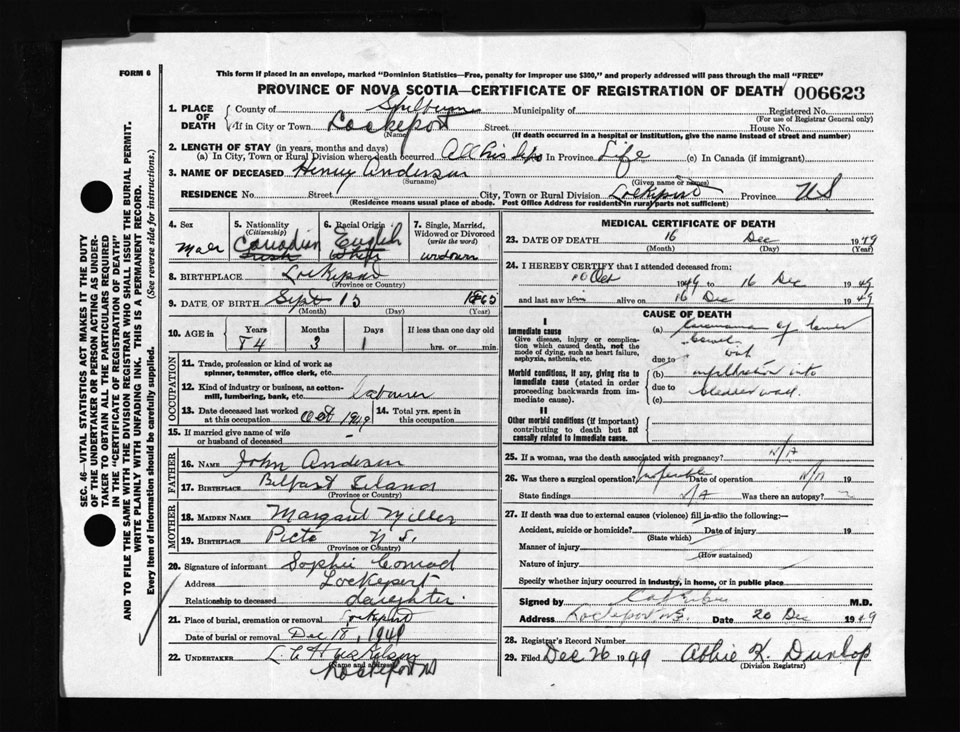 FORM 6
This form if placed in an envelope, marked "Dominion Statistics—Free, penalty for improper use $300," and properly addressed will pass through the mail "FREE"
PROVINCE OF NOVA SCOTIA—CERTIFICATE OF REGISTRATION OF DEATH 006623
SEC. 46—VITAL STATISTICS ACT MAKES IT THE DUTY
OF THE UNDERTAKER OR PERSON ACTING AS UNDER-
TAKER TO OBTAIN ALL THE PARTICULARS REQUIRED
IN THE "CERTIFICATE OF REGISTRATION OF DEATH"
AND TO FILE THE SAME WITH THE DIVISION REGISTRAR WHO SHALL ISSUE THE BURIAL PERMIT.
WRITE PLAINLY WITH UNFADING INK. THIS IS A PERMANENT RECORD.
Every item of Information should be carefully supplied. (See reverse side for instructions.)
1. PLACE OF DEATH County of Shelburne Municipality of Registered No.
(For use of Registrar General only)
If in City or Town Lockeport Street House No.
(Name) (If death occurred in a hospital or institution, give the name instead of street and number)
2. LENGTH OF STAY (in years, months and days)
(a) In City, Town or Rural Division where death occurred All his life In Province Life (c) In Canada (if immigrant)
3. NAME OF DECEASED Henry Anderson
(Surname) (Given name or names)
RESIDENCE No. Street City, Town or Rural Division Lockeport Province NS
(Residence means usual place of abode. Post Office Address for residents in rural parts not sufficient)
4. Sex Male
5. Nationality (Citizenship) Canadian Irish
6. Racial Origin English
7. Single, Married, Widowed or Divorced (write the word) widower
8. BIRTHPLACE Lockeport
(Province or Country)
9. DATE OF BIRTH Sept 15 1865
(Month) (Day) (Year)
10. AGE in Years Months Days If less than one day old
84 3 1 hrs. or min.
OCCUPATION
11. Trade, profession or kind of work as spinner, teamster, office clerk, etc.
12. Kind of industry or business, as cotton-mill, lumbering, bank, etc. labourer
13. Date deceased last worked at this occupation Oct 1949
14. Total yrs. spent in this occupation
15. If married give name of wife or husband of deceased —
FATHER
16. NAME John Anderson
17. BIRTHPLACE Belfast Ireland
(Province or Country)
MOTHER
18. MAIDEN NAME Margaret Miller
19. BIRTHPLACE Picto N.S.
(Province or Country)
20. Signature of informant Sophie Conrad
Address Lockeport
Relationship to deceased daughter.
21. Place of burial, cremation or removal Lockeport
Date of burial or removal Dec 18, 1949
22. UNDERTAKER L C Huskilson
(Name and address) Lockeport NS
MEDICAL CERTIFICATE OF DEATH
23. DATE OF DEATH 16 Dec 1949
(Month) (Day) (Year)
24. I HEREBY CERTIFY that I attended deceased from:
10 Oct 1949 to 16 Dec 1949
and last saw him alive on 16 Dec 1949
CAUSE OF DEATH
I
Immediate cause
Give disease, injury or complication which caused death, not the mode of dying, such as heart failure, asphyxia, asthenia, etc.
(a) Carcinoma of lower
bowel
due to with
Morbid conditions, if any, giving rise to immediate cause (stated in order proceeding backwards from immediate cause).
(b) infiltration into
due to bladder wall
(c)
II
Other morbid conditions (if important) contributing to death but not causally related to immediate cause.
25. If a woman, was the death associated with pregnancy? N/A
26. Was there a surgical operation? Date of operation N/A 19
State findings N/A Was there an autopsy?
27. If death was due to external causes (violence) fill in also the following:—
Accident, suicide or homicide? Date of injury 19
(State which)
Manner of injury
(How sustained)
Nature of injury
Specify whether injury occurred in industry, in home, or in public place
Signed by M.D.
Address Lockeport NS. Date 20 Dec 1949
28. Registrar's Record Number
29. Filed Dec 26 1949 Abbie K. Dunlop
(Division Registrar)